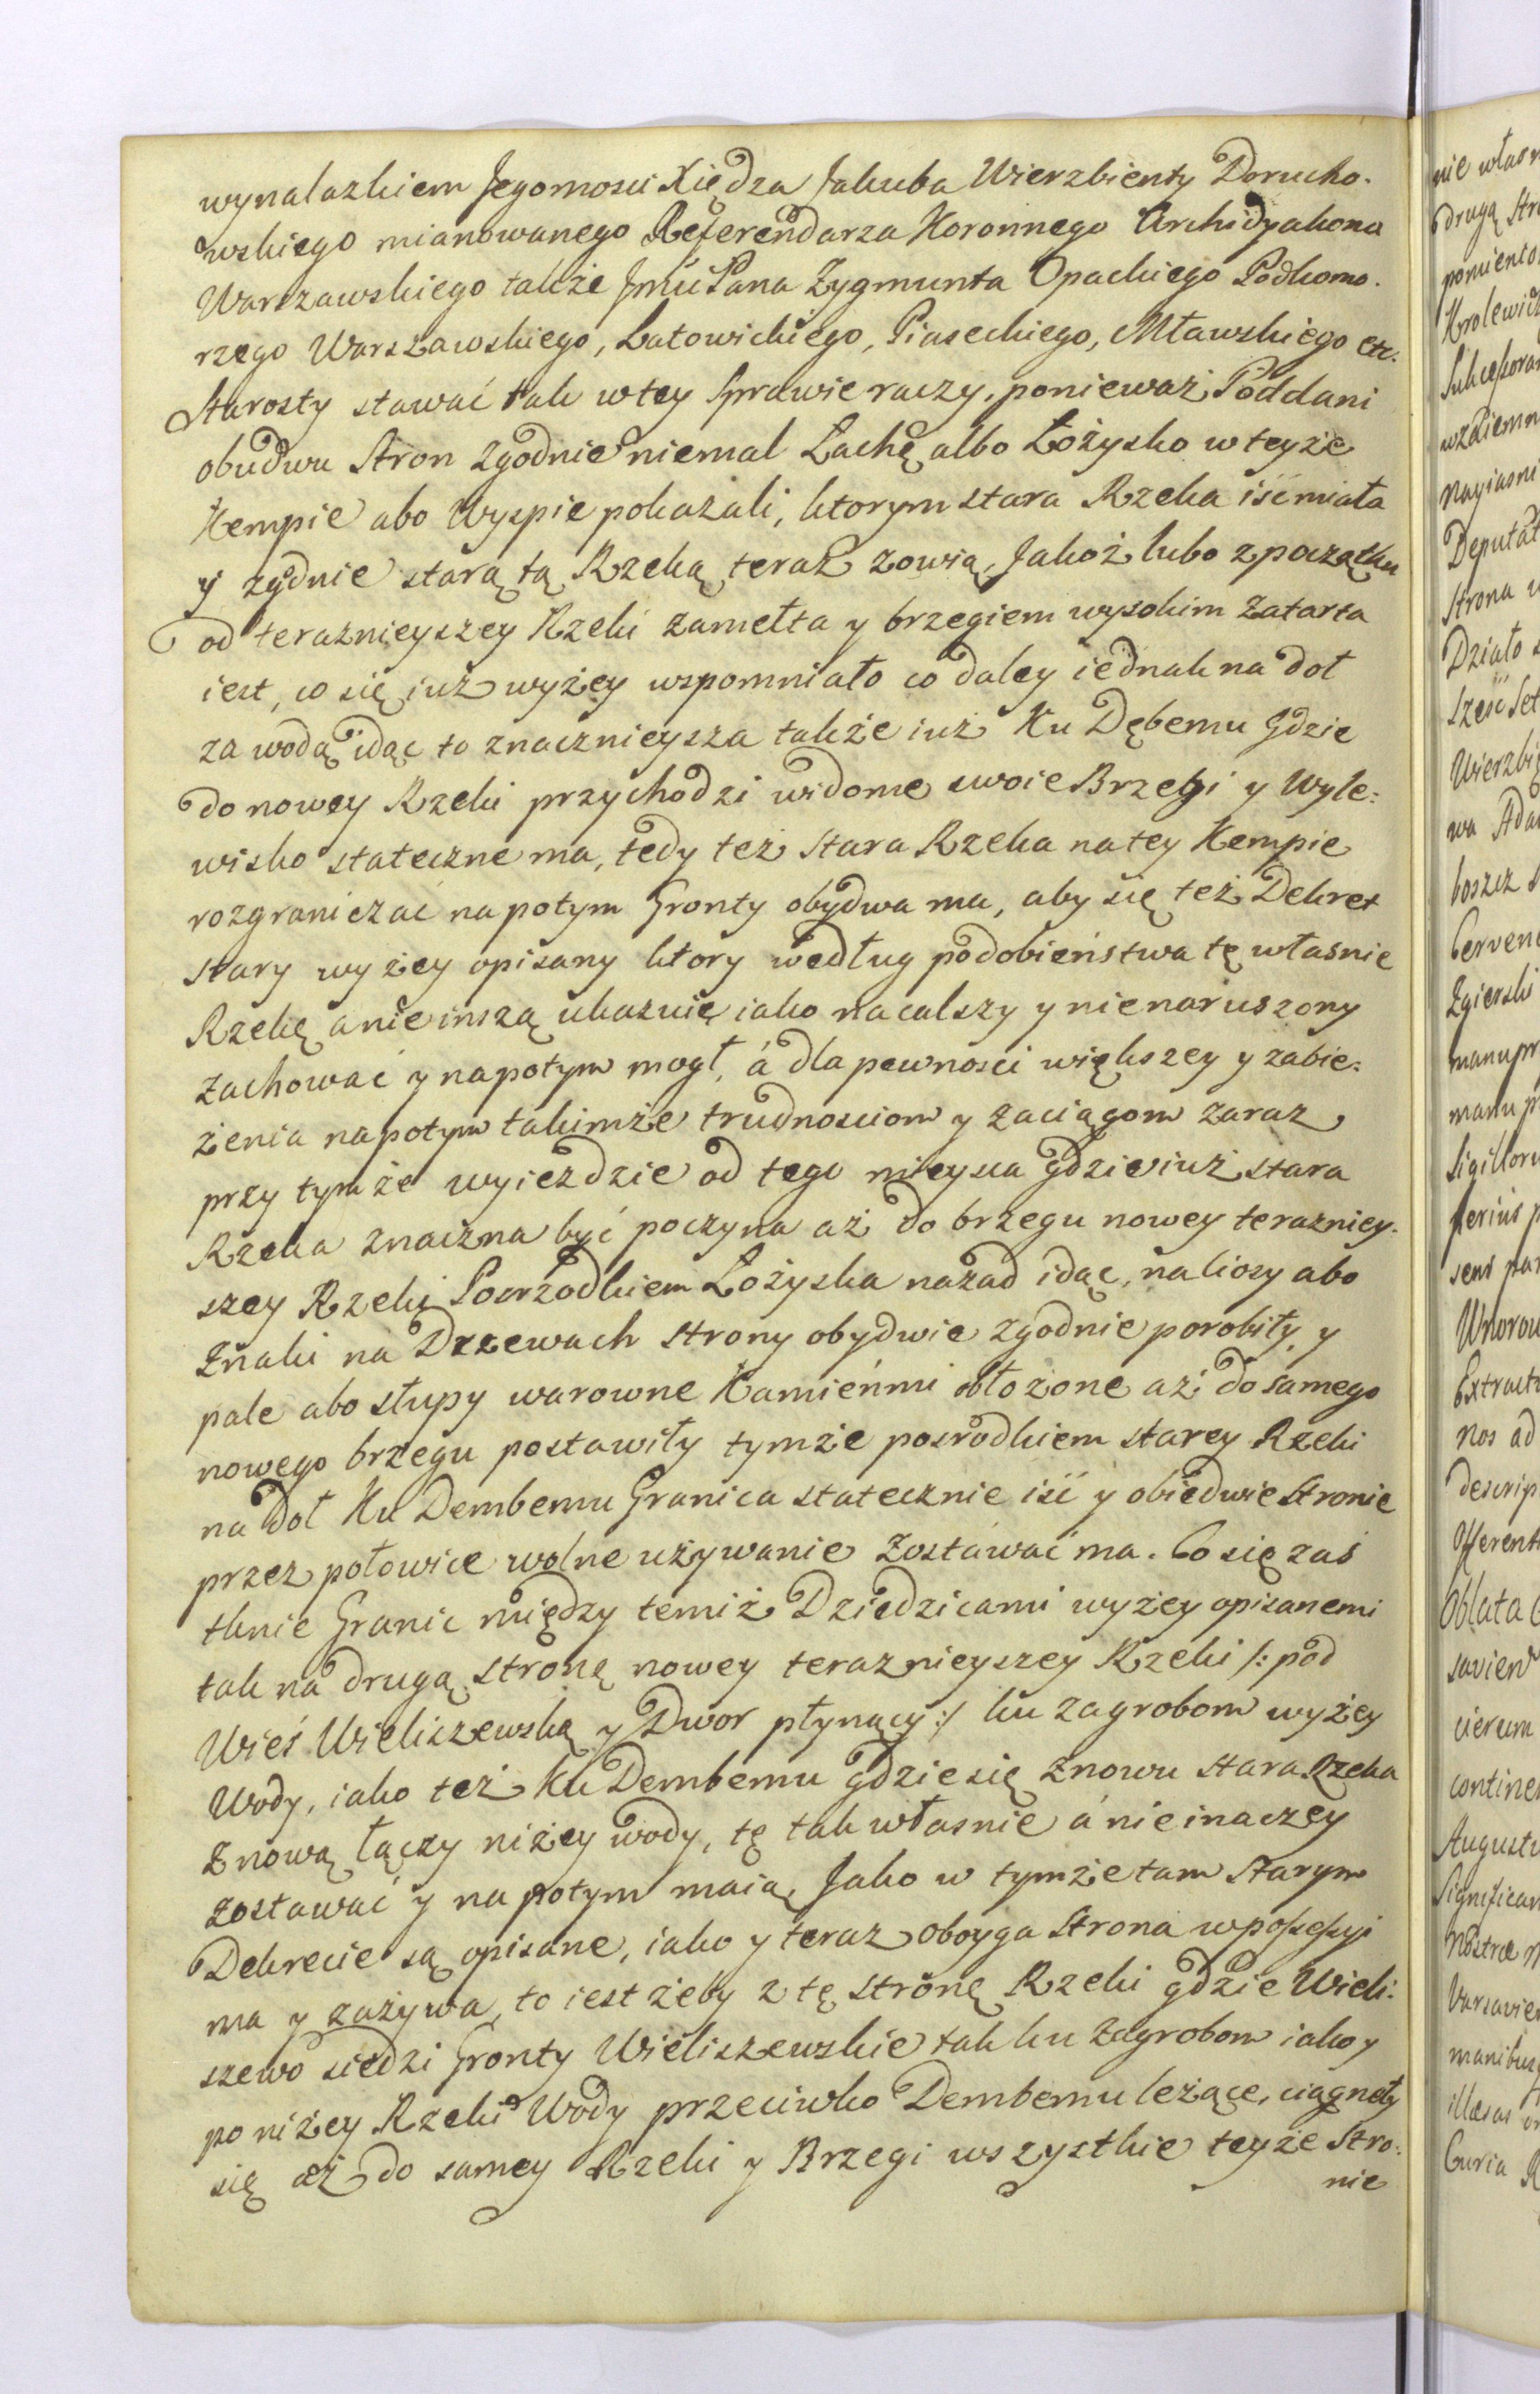 wynalazkiem Jegomosci Xiędza Jakuba Wierzbienty Dorucho-
wskiego mianowanego Referendarza Koronnego Archidyakona
Warszawskiego także Jmći Pana Zygmunta Opackiego Podkomo-
rzego Warszawskiego, Latowickiego, Piaseckiego, Mławskiego etc.
Starosty stawać tak wtey Sprawie raczy, ponieważ Poddani
obudwu Stron zgodnie niemal Lachę albo Łożysko wteyże
Kempie abo Wyspie pokazali, ktorym stara Rzeka iść miała
y zgdnie starą tą Rzeką teraz zowią, Jakoż lubo zpoczątku
od teraznieyszey Rzeki zamełta y brzegiem wysokim zatarta
iest, co się iuż wyżey wspomniało co daley iednak na doł
za wodą idąc to znacznieysza także iuż Ku Dębemu gdzie
do nowey Rzeki przychodzi widome swoie Brzegi y Wyle-
wisko stateczne ma, tedy też stara Rzeka natey Kempie
rozgraniczać napotym Gronty obydwa ma, aby się też Dekret
stary wyżey opisany ktory według podobieństwa tę własnie
Rzekę anie inszą ukazuię iako nacalszy y nienaruszony
zachować y napotym mogł, á dla pewnosci większey y zabie-
żenia napotym takimże trudnosciom y zaciągom zaraz
przy tymże wyiezdzie od tego mieysca gdzie iuż stara
Rzeka znaczna być poczyna aż do brzegu nowey terazniey-
szey Rzeki Posrzodkiem Łożyska nazad idąc, naciosy abo
Znaki na Drzewach strony obydwie zgodnie porobiły, y
pale abo słupy warowne Kamieńmi obłożone aż do samego
nowego brzegu postawiły tymże posrodkiem starey Rzeki
na doł Ku Dembemu Granica statecznie iść y obiedwie stronie
przez połowice wolne używanie zostawać ma. Co się zaś
tknie Granic między temiż Dziedzicami wyżey opisanemi
tak na drugą stronę nowey teraznieyszey Rzeki /: pod
Wieś Wieliszewską y Dwor płynący :/ ku zagrobom wyżey
Wody, iako też Ku Dembemu gdzie się znowu stara Rzeka
znową łączy niżey wody, tę tak własnie á nie inaczey
zostawać y na potym maią, Jako w tymże tam starym
Dekrecie są opisane, iako y teraz oboyga strona wpossessyi
ma y zażywa, to iest żeby z tę stronę Rzeki gdzie Wieli-
szewo siedzi Gronty Wieliszewskie tak ku Zagrobom iako y
poniżey Rzeki Wody przeciwko Dembemu leżące, ciągnęły
się aż do samey Rzeki y Brzegi wszystkie teyże Stro-
nie
nie własn
drugą Str
Krolewicz
wzaiemn
Nayiasni
Deputat
Strona
Działo
Sześć Set
Wierzbię
wa Ada
boszcz
Zgierski
manu pr
manu p
Sigilloru
Extractu
Nos ad
descrip
Oblata
cierum
continen
Augustu
Significan
Nostræ
Varsavien
manibus
illæsas
Curia